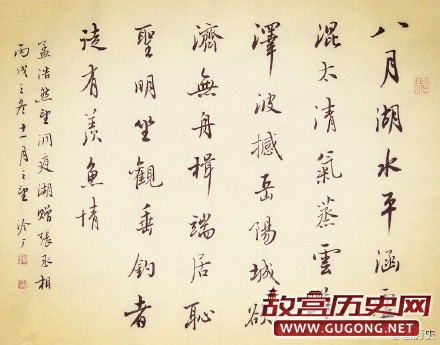 八月湖水平涵
混太清氣蒸雲
澤波撼岳陽城欲
濟無舟楫端居恥
聖明坐觀垂釣者
徒有羨魚情
孟浩然望洞庭湖贈張丞相
丙戌之冬十一月之望
故宫历史网
WWW.GUGONG.NET
历史